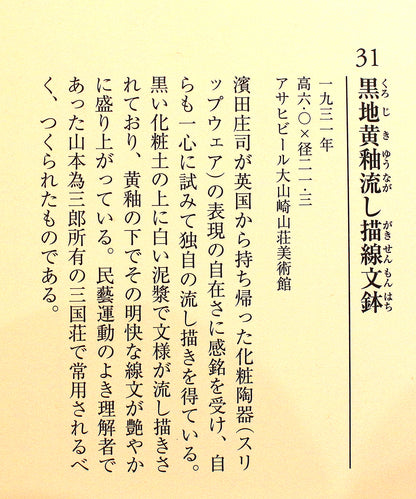 31
黒地黄釉流し描線文鉢
くろじきゆうながしがきせんもんはち
一九三一年
高六・〇×径二一・三
アサヒビール大山崎山荘美術館
濱田庄司が英国から持ち帰った化粧陶器（スリ
ップウェア）の表現の自在さに感銘を受け、自
らも一心に試みて独自の流し描きを得ている。
黒い化粧土の上に白い泥漿で文様が流し描きさ
れており、黄釉の下でその明快な線文が艶やか
に盛り上がっている。民藝運動のよき理解者で
あった山本為三郎所有の三国荘で常用されるべ
く、つくられたものである。